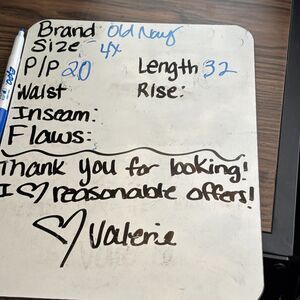 Brand: Old Navy
Size: 4x
P/P 20 Length 32
Waist Rise:
Inseam:
Flaws:
Thank you for looking!
I ♡ reasonable offers!
♡ Valerie